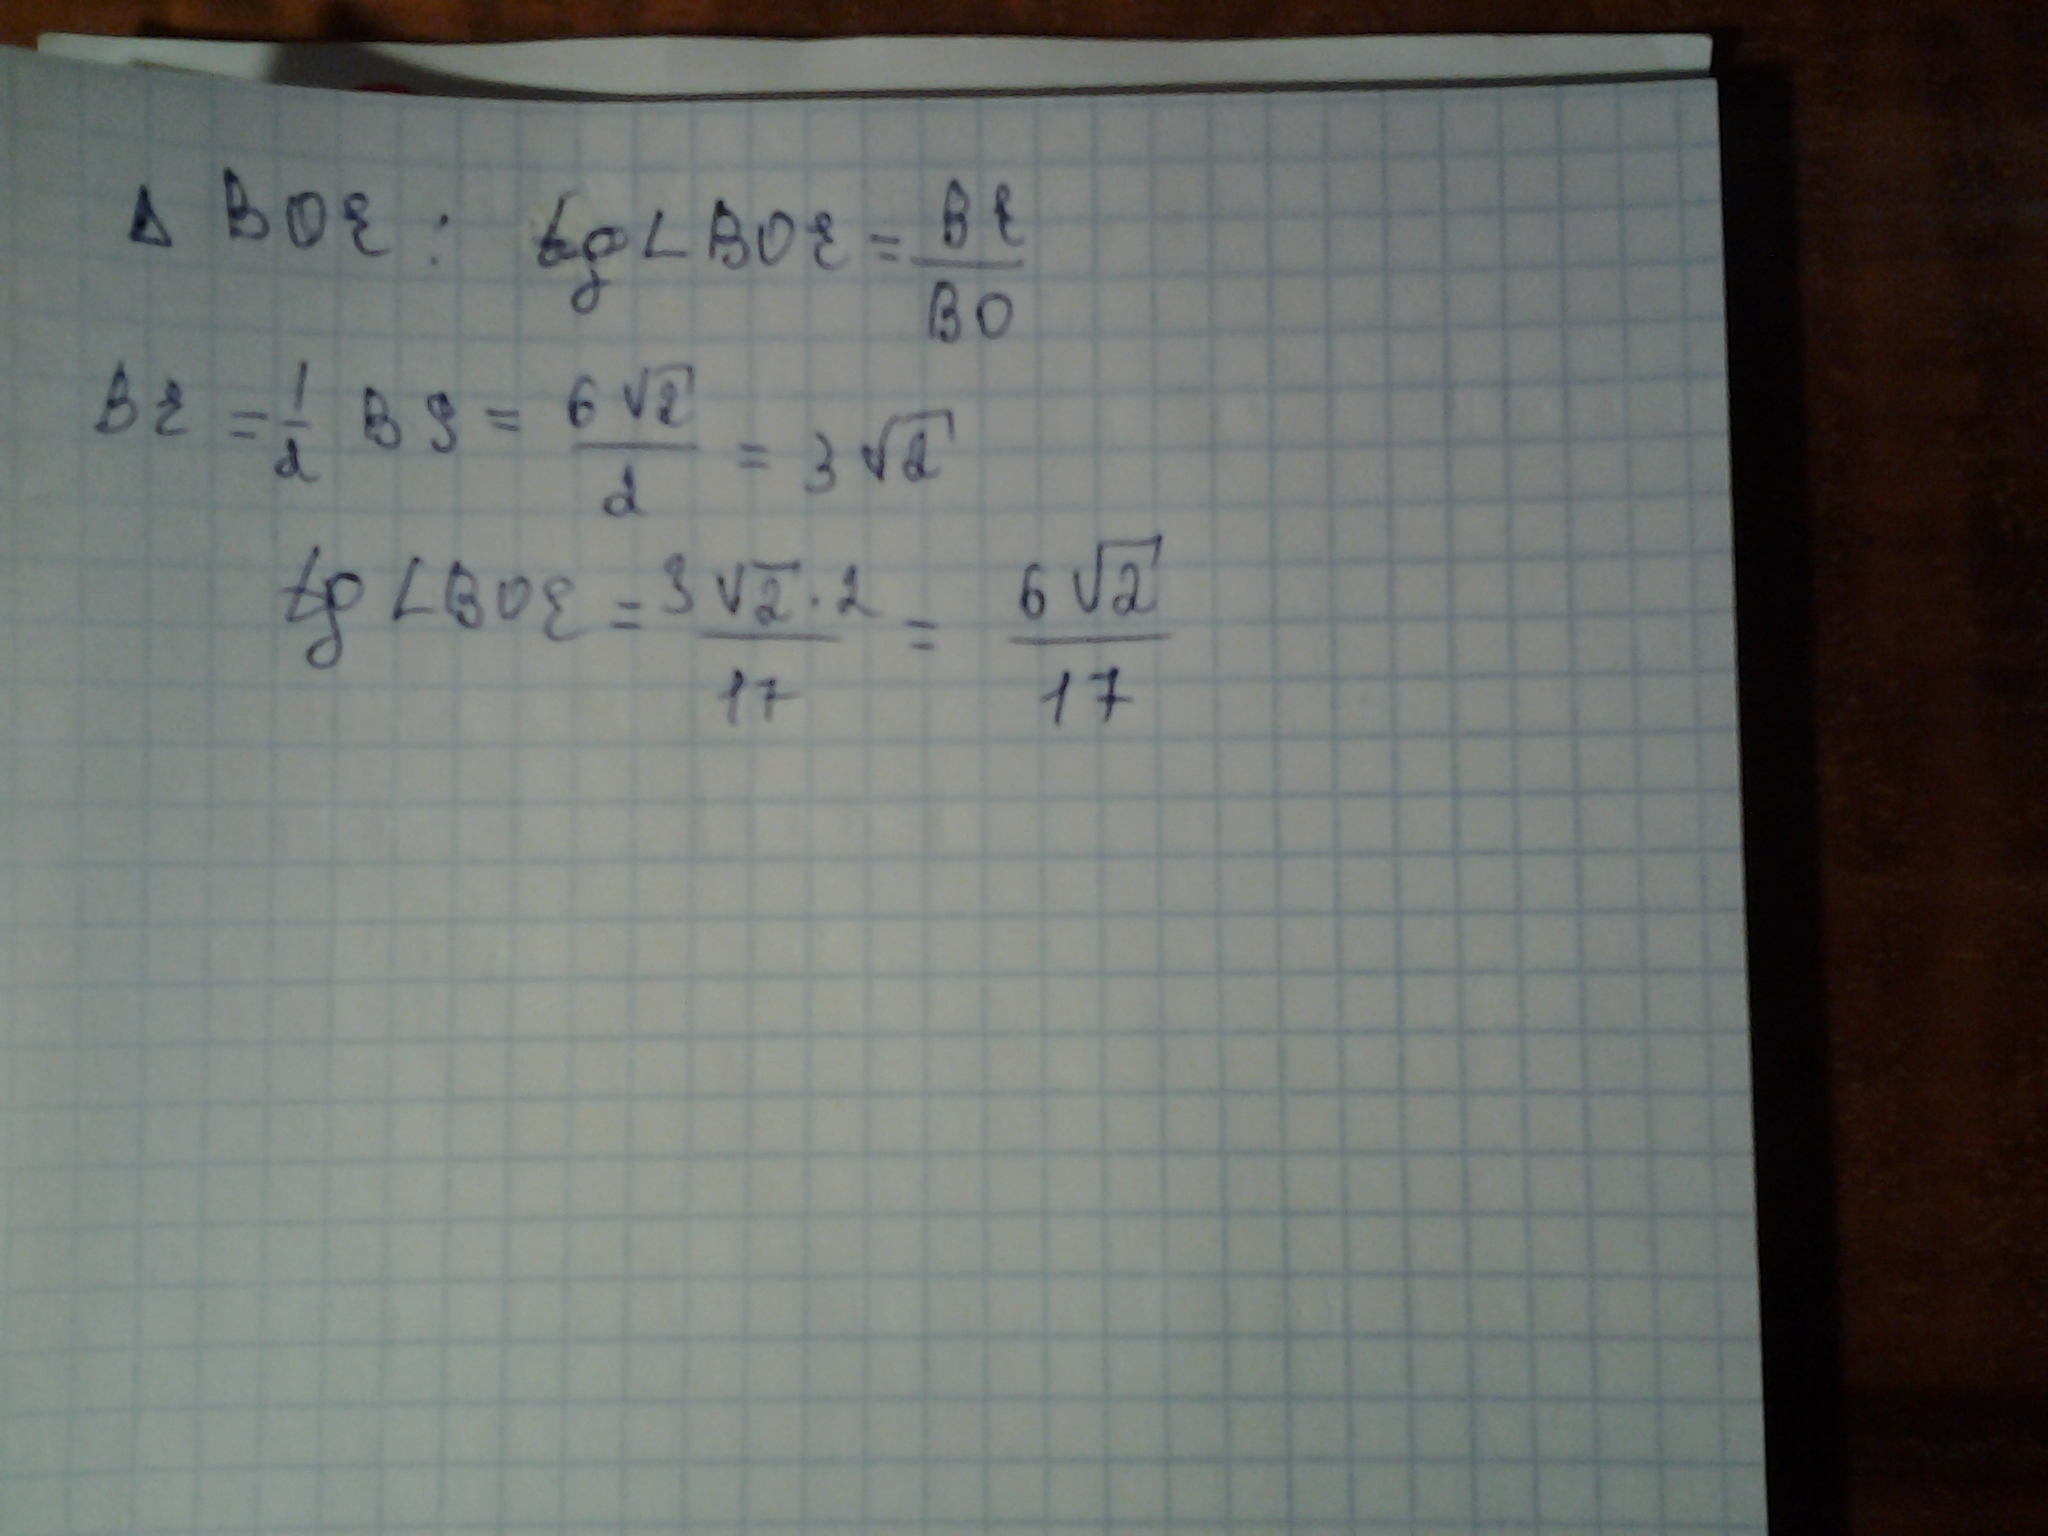 Δ BOE : tg ∠BOE = BE/BO
BE = 1/2 BS = 6√2/2 = 3√2
tg ∠BOE = 3√2·2/17 = 6√2/17